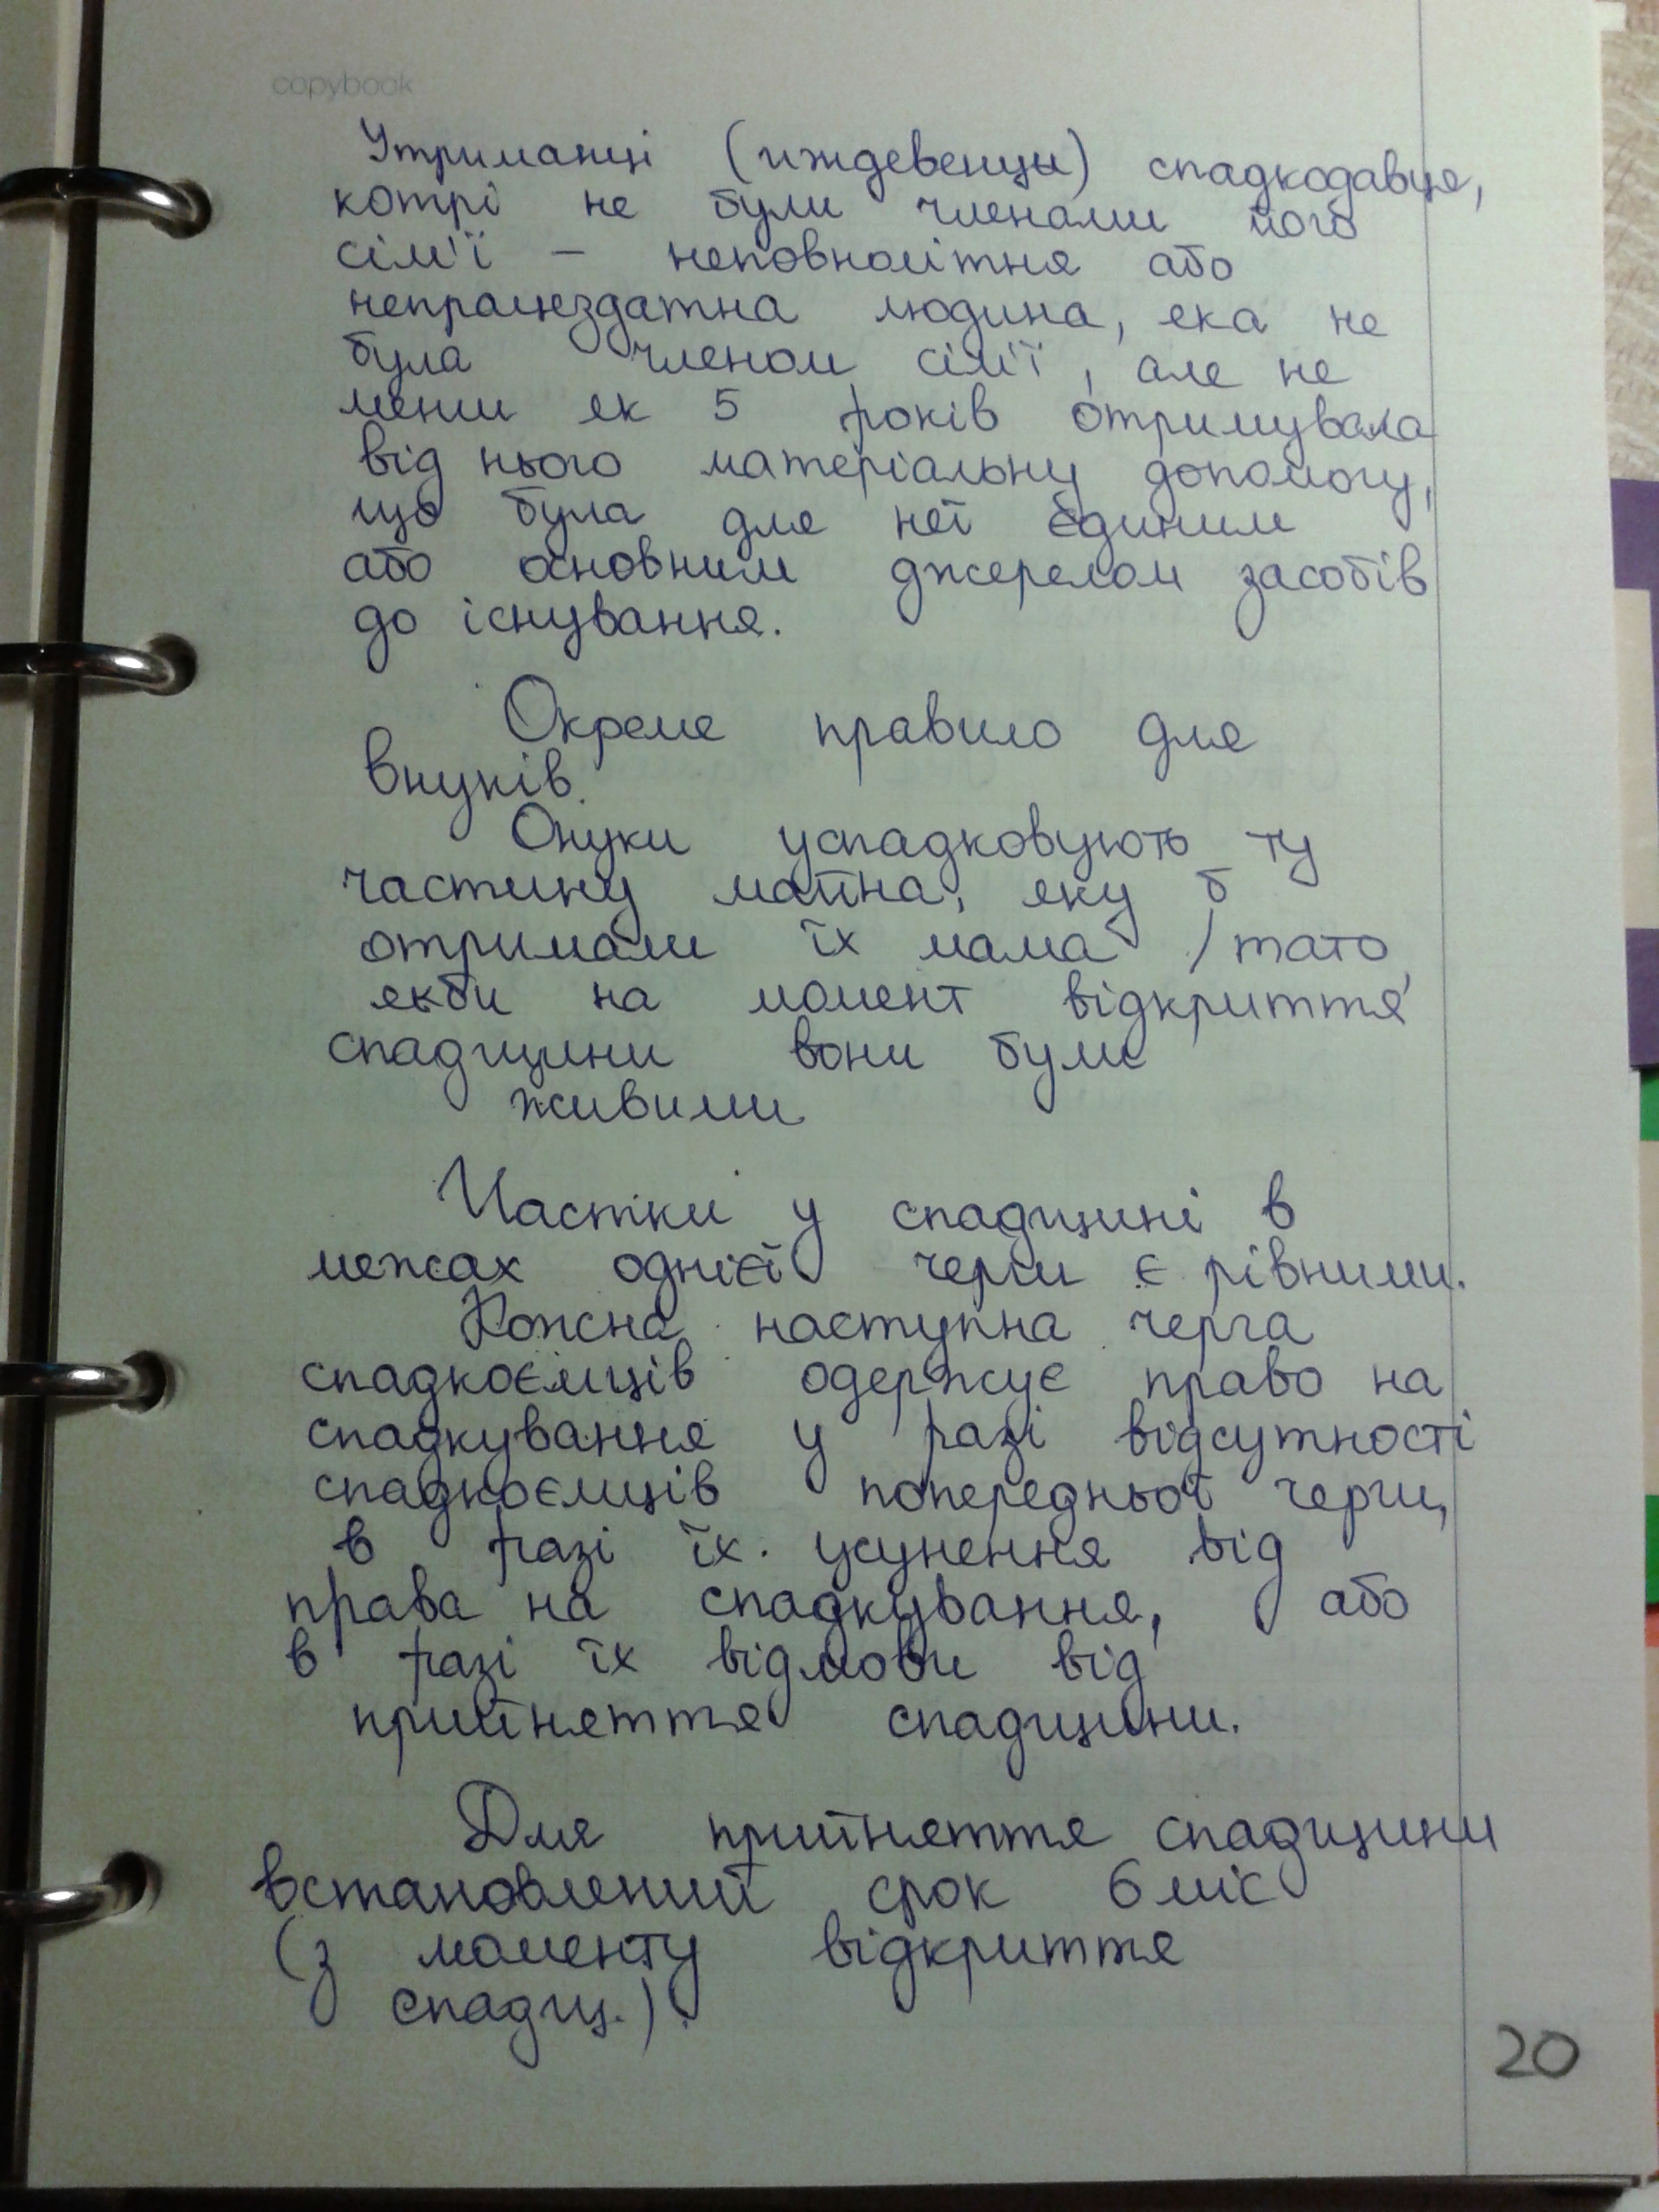 copybook
Утриманці (иждевенцы) спадкодавця,
котрі не були членами його
сім'ї – неповнолітня або
непрацездатна людина, яка не
була членом сім'ї, але не
менш як 5 років отримувала
від нього матеріальну допомогу,
що була для неї єдиним
або основним джерелом засобів
до існування.
Окреме правило для
внуків.
Онуки успадковують ту
частину майна, яку б
отримали їх мама / тато,
якби на момент відкриття
спадщини вони були
живими
Частки у спадщині в
межах однієї черги є рівними.
Кожна наступна черга
спадкоємців одержує право на
спадкування у разі відсутності
спадкоємців попередньої черги,
в разі їх усунення від
права на спадкування, або
в разі їх відмови від
прийняття спадщини.
Для прийняття спадщини
встановлений срок 6 міс
(з моменту відкриття
спадщ.).
20